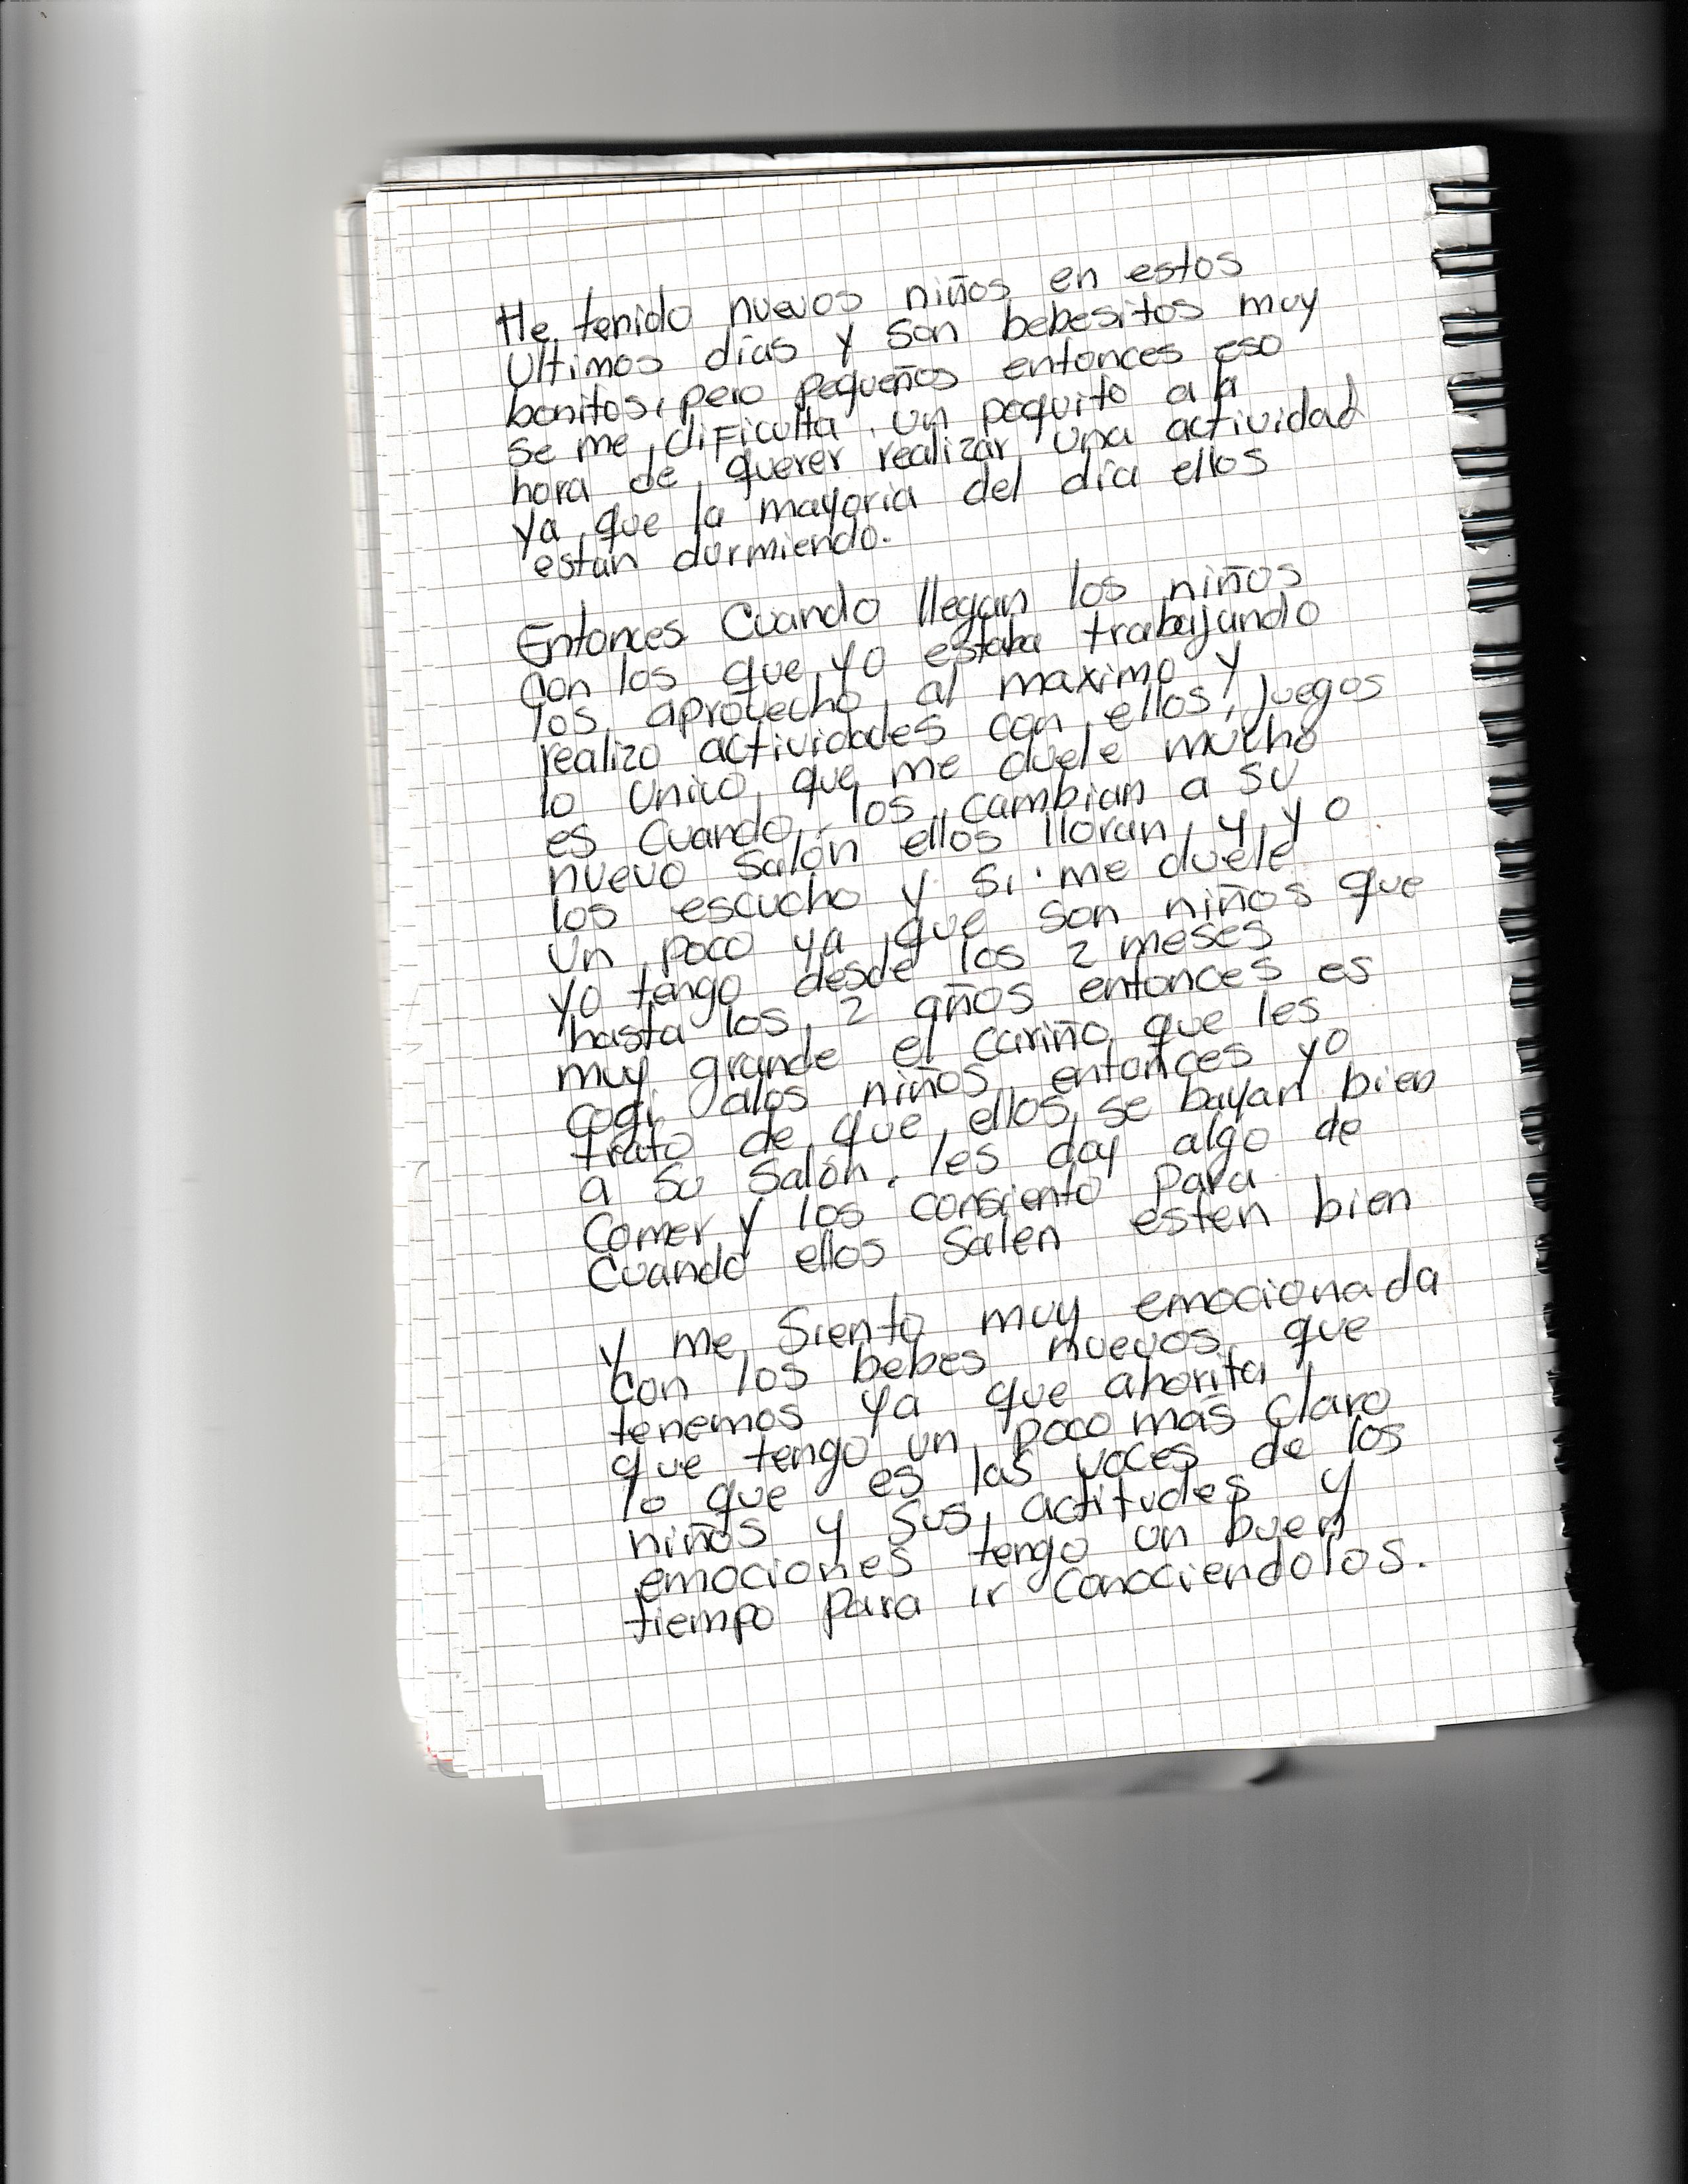 He tenido nuevos niños en estos
Ultimos días y son bebesitos muy
bonitos, pero pequeños entonces eso
se me dificulta un poquito a la
hora de querer realizar una actividad
ya que la mayoria del día ellos
estan durmiendo.
Entonces Cuando llegan los niños
con los que yo estaba trabajando
los aprovecho al maximo y
realizo actividades con ellos, juegos
lo unico que me duele mucho
es cuando los cambian a su
nuevo salón ellos lloran y yo
los escucho y si me duele
un poco ya que son niños que
yo tengo desde los 2 meses
hasta los 2 años entonces es
muy grande el cariño que les
cogi alos niños entonces yo
trato de que ellos se bayan bien
a su salón. les doy algo de
Comer y los consiento para
Cuando ellos salen esten bien
y me siento muy emocionada
con los bebes nuevos que
tenemos ya que ahorita
que tengo un poco más claro
lo que es las voces de los
niños y sus actitudes y
emociones tengo un buen
tiempo para ir conociendolos.